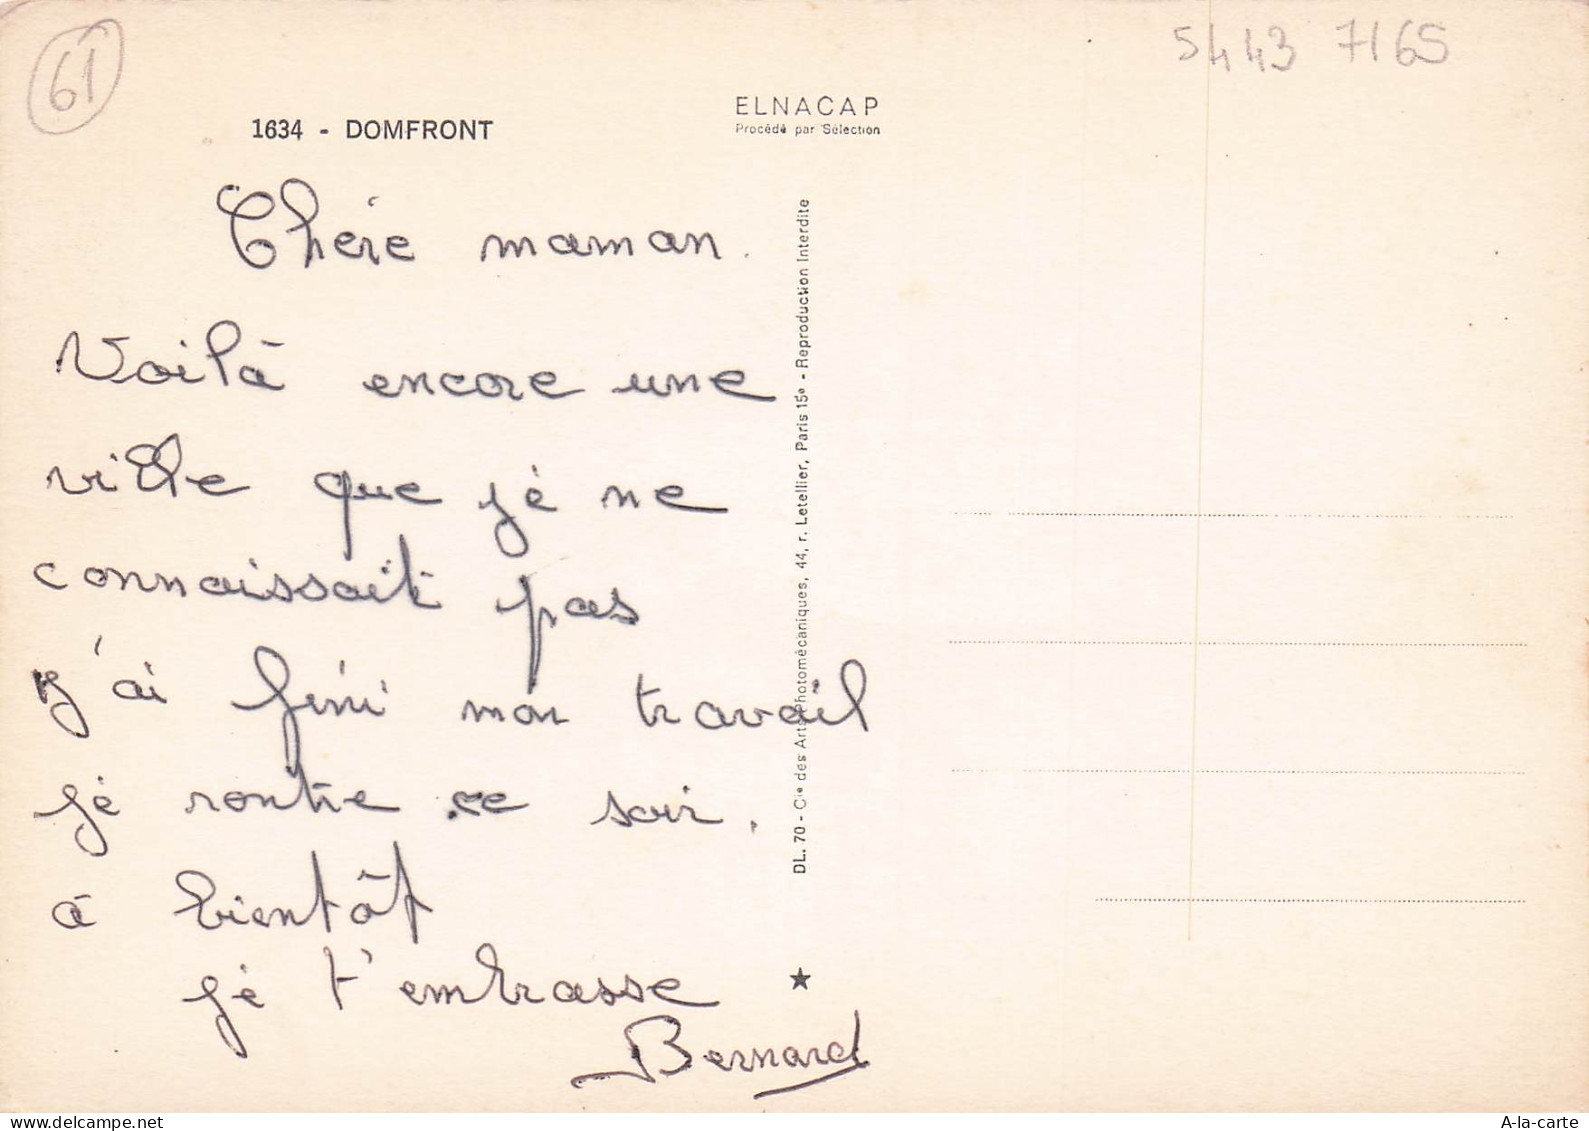 61
5443 7165
ELNACAP
Procédé par Sélection
1634 - DOMFRONT
Chére maman.
Voilà encore une
ville que je ne
connaissait pas
j'ai fini mon travail
je rentre ce soir.
à bientôt
je t'embrasse
Bernard
DL. 70 - Cie des Arts Photomécaniques, 44, r. Letellier, Paris 15e - Reproduction Interdite
A-la-carte